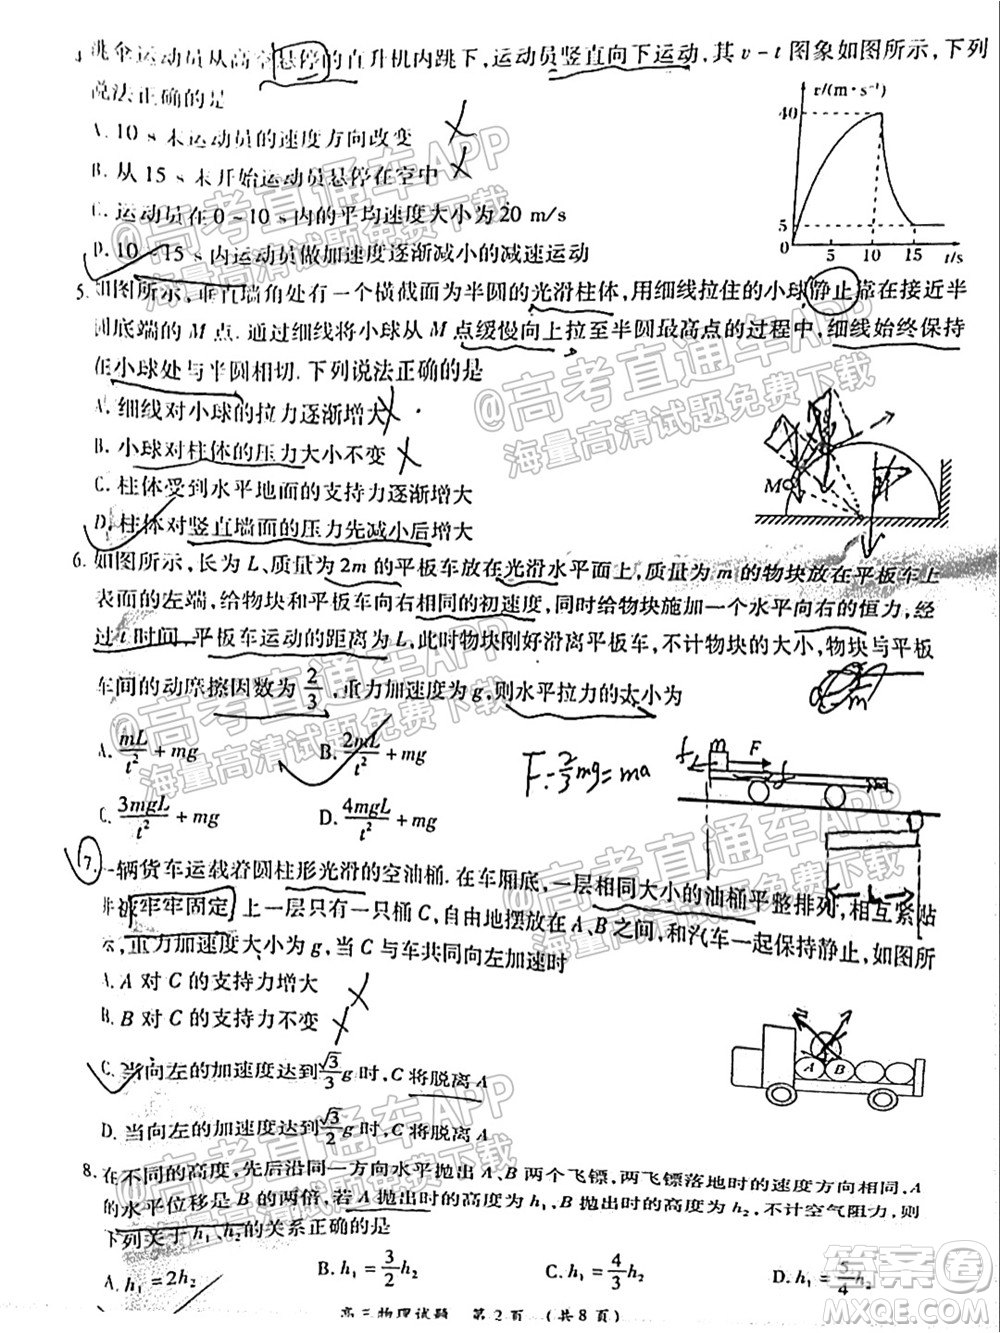 跳伞运动员从高空悬停的直升机内跳下,运动员竖直向下运动,其 v-t 图象如图所示,下列
说法正确的是
A. 10 s 末运动员的速度方向改变
B. 从 15 s 末开始运动员悬停在空中
C. 运动员在 0~10 s 内的平均速度大小为 20 m/s
D. 10~15 s 内运动员做加速度逐渐减小的减速运动
v/(m·s⁻¹)
40
5
0 5 10 15 t/s
5. 如图所示,垂直墙角处有一个横截面为半圆的光滑柱体,用细线拉住的小球静止靠在接近半
圆底端的 M 点.通过细线将小球从 M 点缓慢向上拉至半圆最高点的过程中,细线始终保持
在小球处与半圆相切.下列说法正确的是
A. 细线对小球的拉力逐渐增大
B. 小球对柱体的压力大小不变
C. 柱体受到水平地面的支持力逐渐增大
D. 柱体对竖直墙面的压力先减小后增大
M
6. 如图所示,长为 L、质量为 2m 的平板车放在光滑水平面上,质量为 m 的物块放在平板车上
表面的左端,给物块和平板车向右相同的初速度,同时给物块施加一个水平向右的恒力,经
过 t 时间,平板车运动的距离为 L,此时物块刚好滑离平板车,不计物块的大小,物块与平板
车间的动摩擦因数为 2/3,重力加速度为 g,则水平拉力的大小为
A. mL/t² + mg B. 2mL/t² + mg
C. 3mgL/t² + mg D. 4mgL/t² + mg
F - 2/3 mg = ma
f m F f
L
7. 一辆货车运载着圆柱形光滑的空油桶.在车厢底,一层相同大小的油桶平整排列,相互紧贴
并被牢牢固定,上一层只有一只桶 C,自由地摆放在 A、B 之间,和汽车一起保持静止,如图所
示,重力加速度大小为 g,当 C 与车共同向左加速时
A. A 对 C 的支持力增大
B. B 对 C 的支持力不变
C. 当向左的加速度达到 √3/3 g 时,C 将脱离 A
D. 当向左的加速度达到 √3/2 g 时,C 将脱离 A
A B
8. 在不同的高度,先后沿同一方向水平抛出 A、B 两个飞镖,两飞镖落地时的速度方向相同,A
的水平位移是 B 的两倍,若 A 抛出时的高度为 h₁,B 抛出时的高度为 h₂,不计空气阻力,则
下列关于 h₁、h₂ 的关系正确的是
A. h₁=2h₂ B. h₁=3/2 h₂ C. h₁=4/3 h₂ D. h₁=5/4 h₂
高三物理试题 第 2 页 (共 8 页)
@高考直通车APP
海量高清试题免费下载
@高考直通车APP
海量高清试题免费下载
@高考直通车APP
海量高清试题免费下载
@高考直通车APP
海量高清试题免费下载
@高考直通车APP
海量高清试题免费下载
答案圈
MXQE.COM